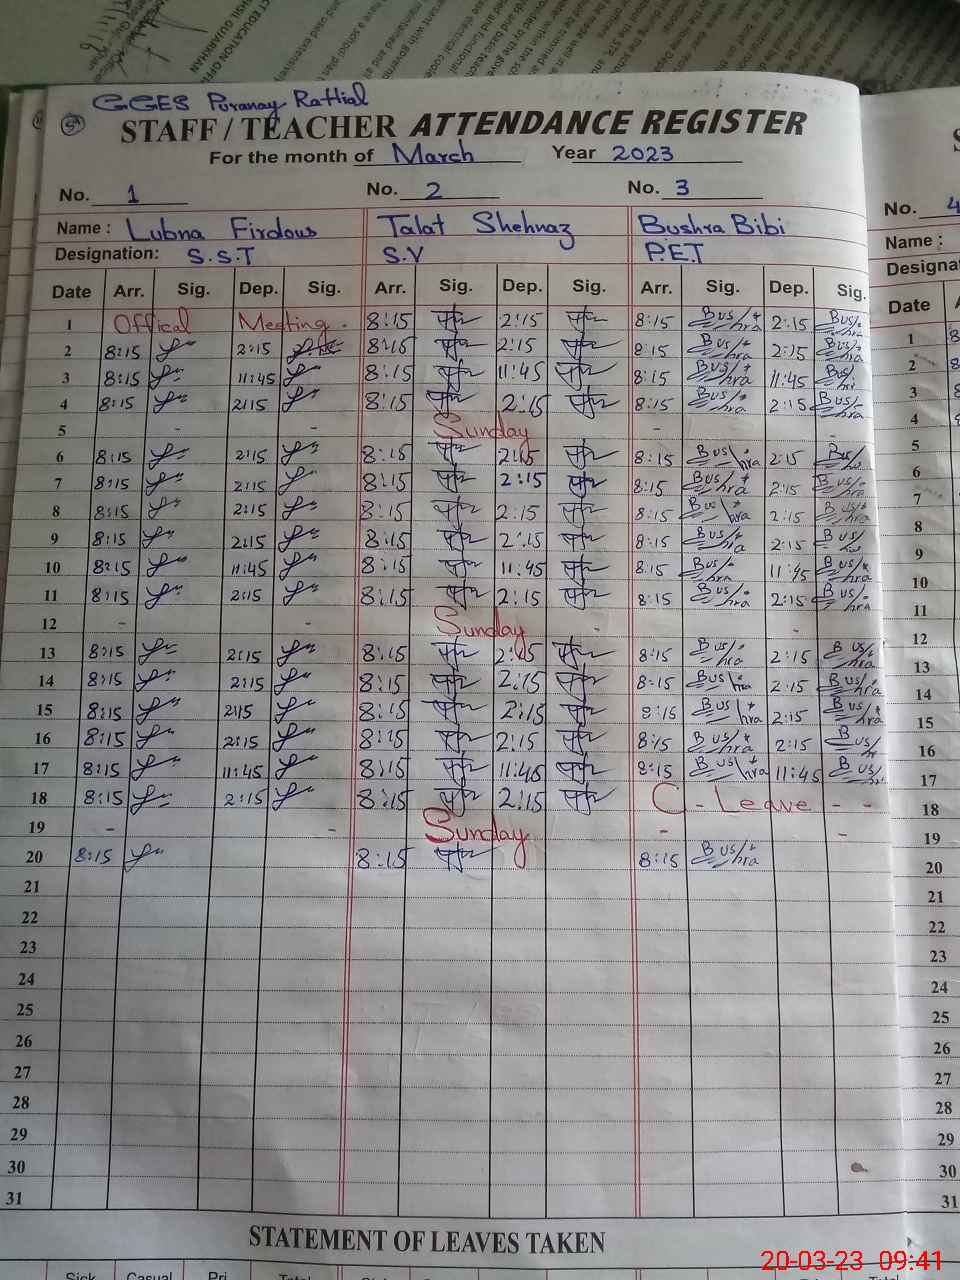 GGES Puranay Rattial
5
STAFF / TEACHER ATTENDANCE REGISTER
For the month of March Year 2023
No. 1 No. 2 No. 3 No. 4
Name : Lubna Firdous Talat Shehnaz Bushra Bibi Name :
Designation: S.S.T S.V P.E.T
Date Arr. Sig. Dep. Sig. Arr. Sig. Dep. Sig. Arr. Sig. Dep. Sig. Date
1 Offical Meeting. 8:15 2:15 8:15 Bus/hra 2:15 Bus/ 1
2 8:15 2:15 8:15 2:15 8:15 Bus/hra 2:15 Bus/hra 2
3 8:15 11:45 8:15 11:45 8:15 Bus/hra 11:45 Bus/ 3
4 8:15 2:15 8:15 2:15 8:15 Bus/hra 2:15 Bus/hra 4
5 - - Sunday - - 5
6 8:15 2:15 8:15 2:15 8:15 Bus\hra 2:15 Bus/ 6
7 8:15 2:15 8:15 2:15 8:15 Bus/hra 2:15 Bus/hra 7
8 8:15 2:15 8:15 2:15 8:15 Bus\hra 2:15 Bus/hra 8
9 8:15 2:15 8:15 2:15 8:15 Bus/hra 2:15 Bus/ 9
10 8:15 11:45 8:15 11:45 8:15 Bus/hra 11:45 Bus/hra 10
11 8:15 2:15 8:15 2:15 8:15 Bus/hra 2:15 Bus/hra 11
12 - - Sunday - - 12
13 8:15 2:15 8:15 2:15 8:15 Bus/hra 2:15 Bus/hra 13
14 8:15 2:15 8:15 2:15 8:15 Bus\hra 2:15 Bus/hra 14
15 8:15 2:15 8:15 2:15 8:15 Bus\hra 2:15 Bus/hra 15
16 8:15 2:15 8:15 2:15 8:15 Bus/hra 2:15 Bus/ 16
17 8:15 11:45 8:15 11:45 8:15 Bus\hra 11:45 Bus/ 17
18 8:15 2:15 8:15 2:15 C - Leave - - 18
19 - - Sunday - - 19
20 8:15 8:15 8:15 Bus/hra 20
21 21
22 22
23 23
24 24
25 25
26 26
27 27
28 28
29 29
30 30
31 31
STATEMENT OF LEAVES TAKEN
Sick Casual Pri Total Total
20-03-23 09:41